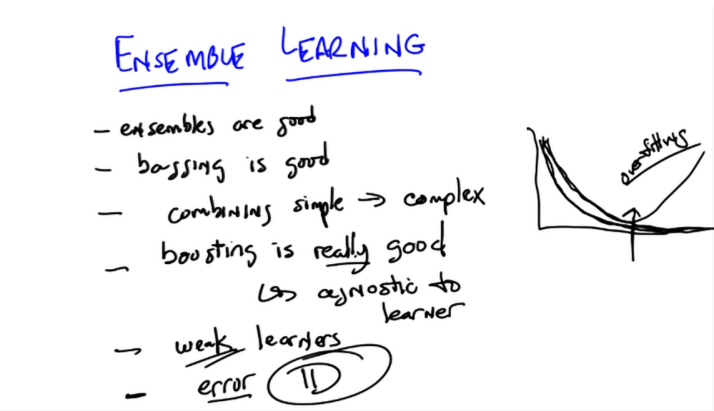 ENSEMBLE LEARNING
- ensembles are good
- bagging is good
- combining simple → complex
- boosting is really good
↳ agnostic to
learner
- weak learners
- error
overfitting